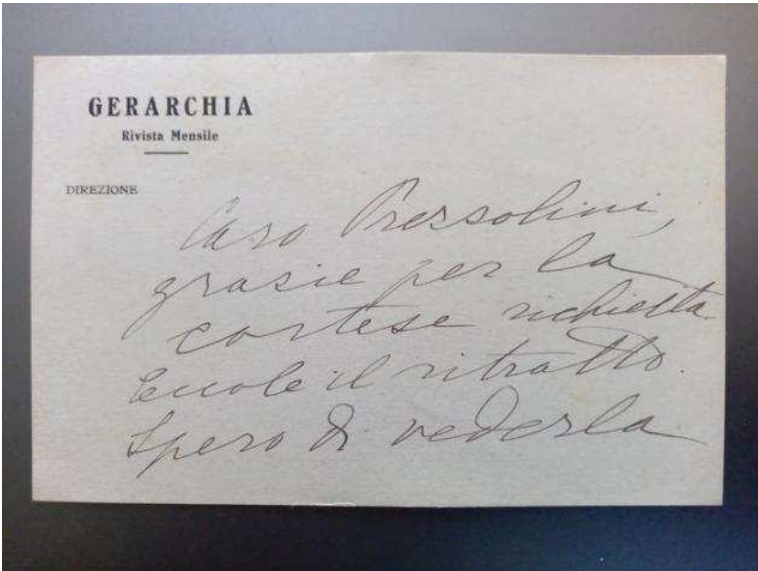 GERARCHIA
Rivista Mensile
DIREZIONE
Caro Pressolini,
grasie per la
cortese richiesta
Eccole il ritratto.
Spero di vederla